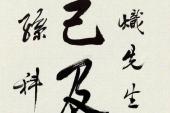 熾先生
己及
孫科